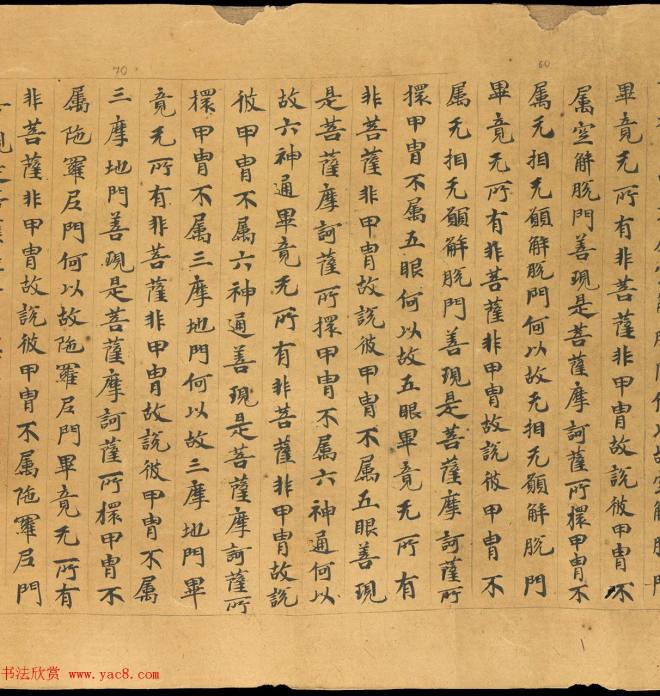 60
畢竟无所有非菩薩非甲冑故說彼甲冑不
属空解脫門善現是菩薩摩訶薩所擐甲冑不
属无相无願解脫門何以故无相无願解脫門
畢竟无所有非菩薩非甲冑故說彼甲冑不
属无相无願解脫門善現是菩薩摩訶薩所
擐甲冑不属五眼何以故五眼畢竟无所有
非菩薩非甲冑故說彼甲冑不属五眼善現
是菩薩摩訶薩所擐甲冑不属六神通何以
故六神通畢竟无所有非菩薩非甲冑故說
彼甲冑不属六神通善現是菩薩摩訶薩所
擐甲冑不属三摩地門何以故三摩地門畢
竟无所有非菩薩非甲冑故說彼甲冑不属
70
三摩地門善現是菩薩摩訶薩所擐甲冑不
属陁羅尼門何以故陁羅尼門畢竟无所有
非菩薩非甲冑故說彼甲冑不属陁羅尼門
书法欣赏 www.yac8.com